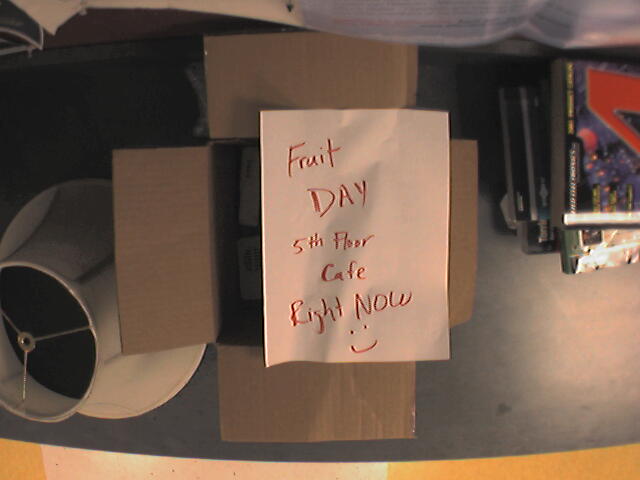 Fruit
DAY
5th Floor
Cafe
Right NOW